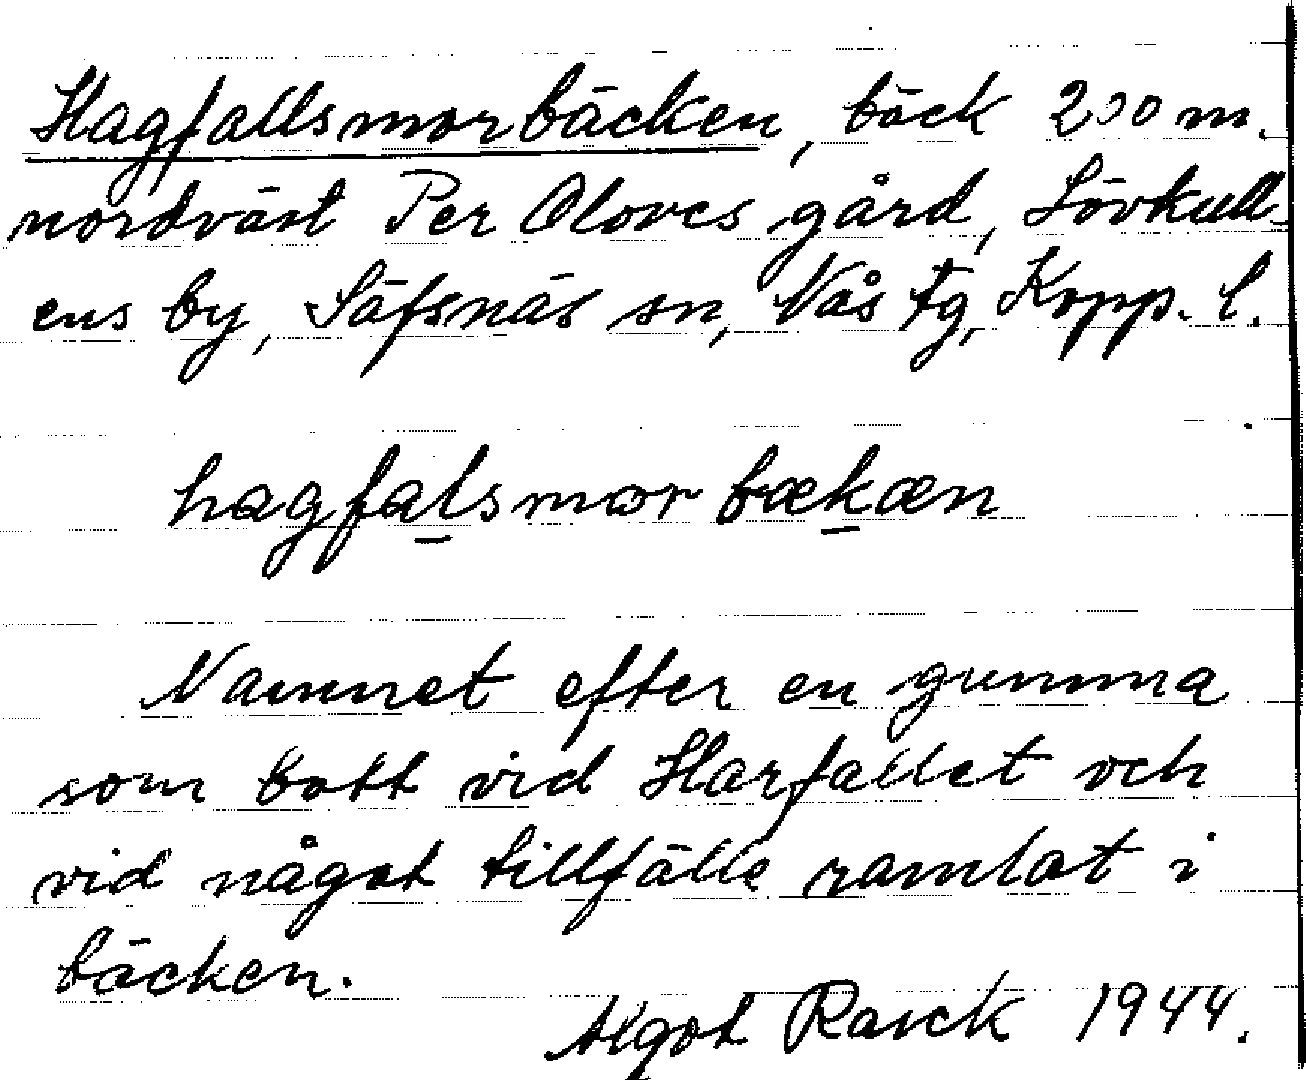 Hagfallsmorbäcken, bäck 200 m.
nordväst Per Oloves gård, Lövkull-
ens by, Säfsnäs sn, Nås tg, Kopp. l.
hagfalsmorbækæn
Namnet efter en gumma
som bott vid Harfallet och
vid något tillfälle ramlat i
bäcken.
Algot Rasck 1944.